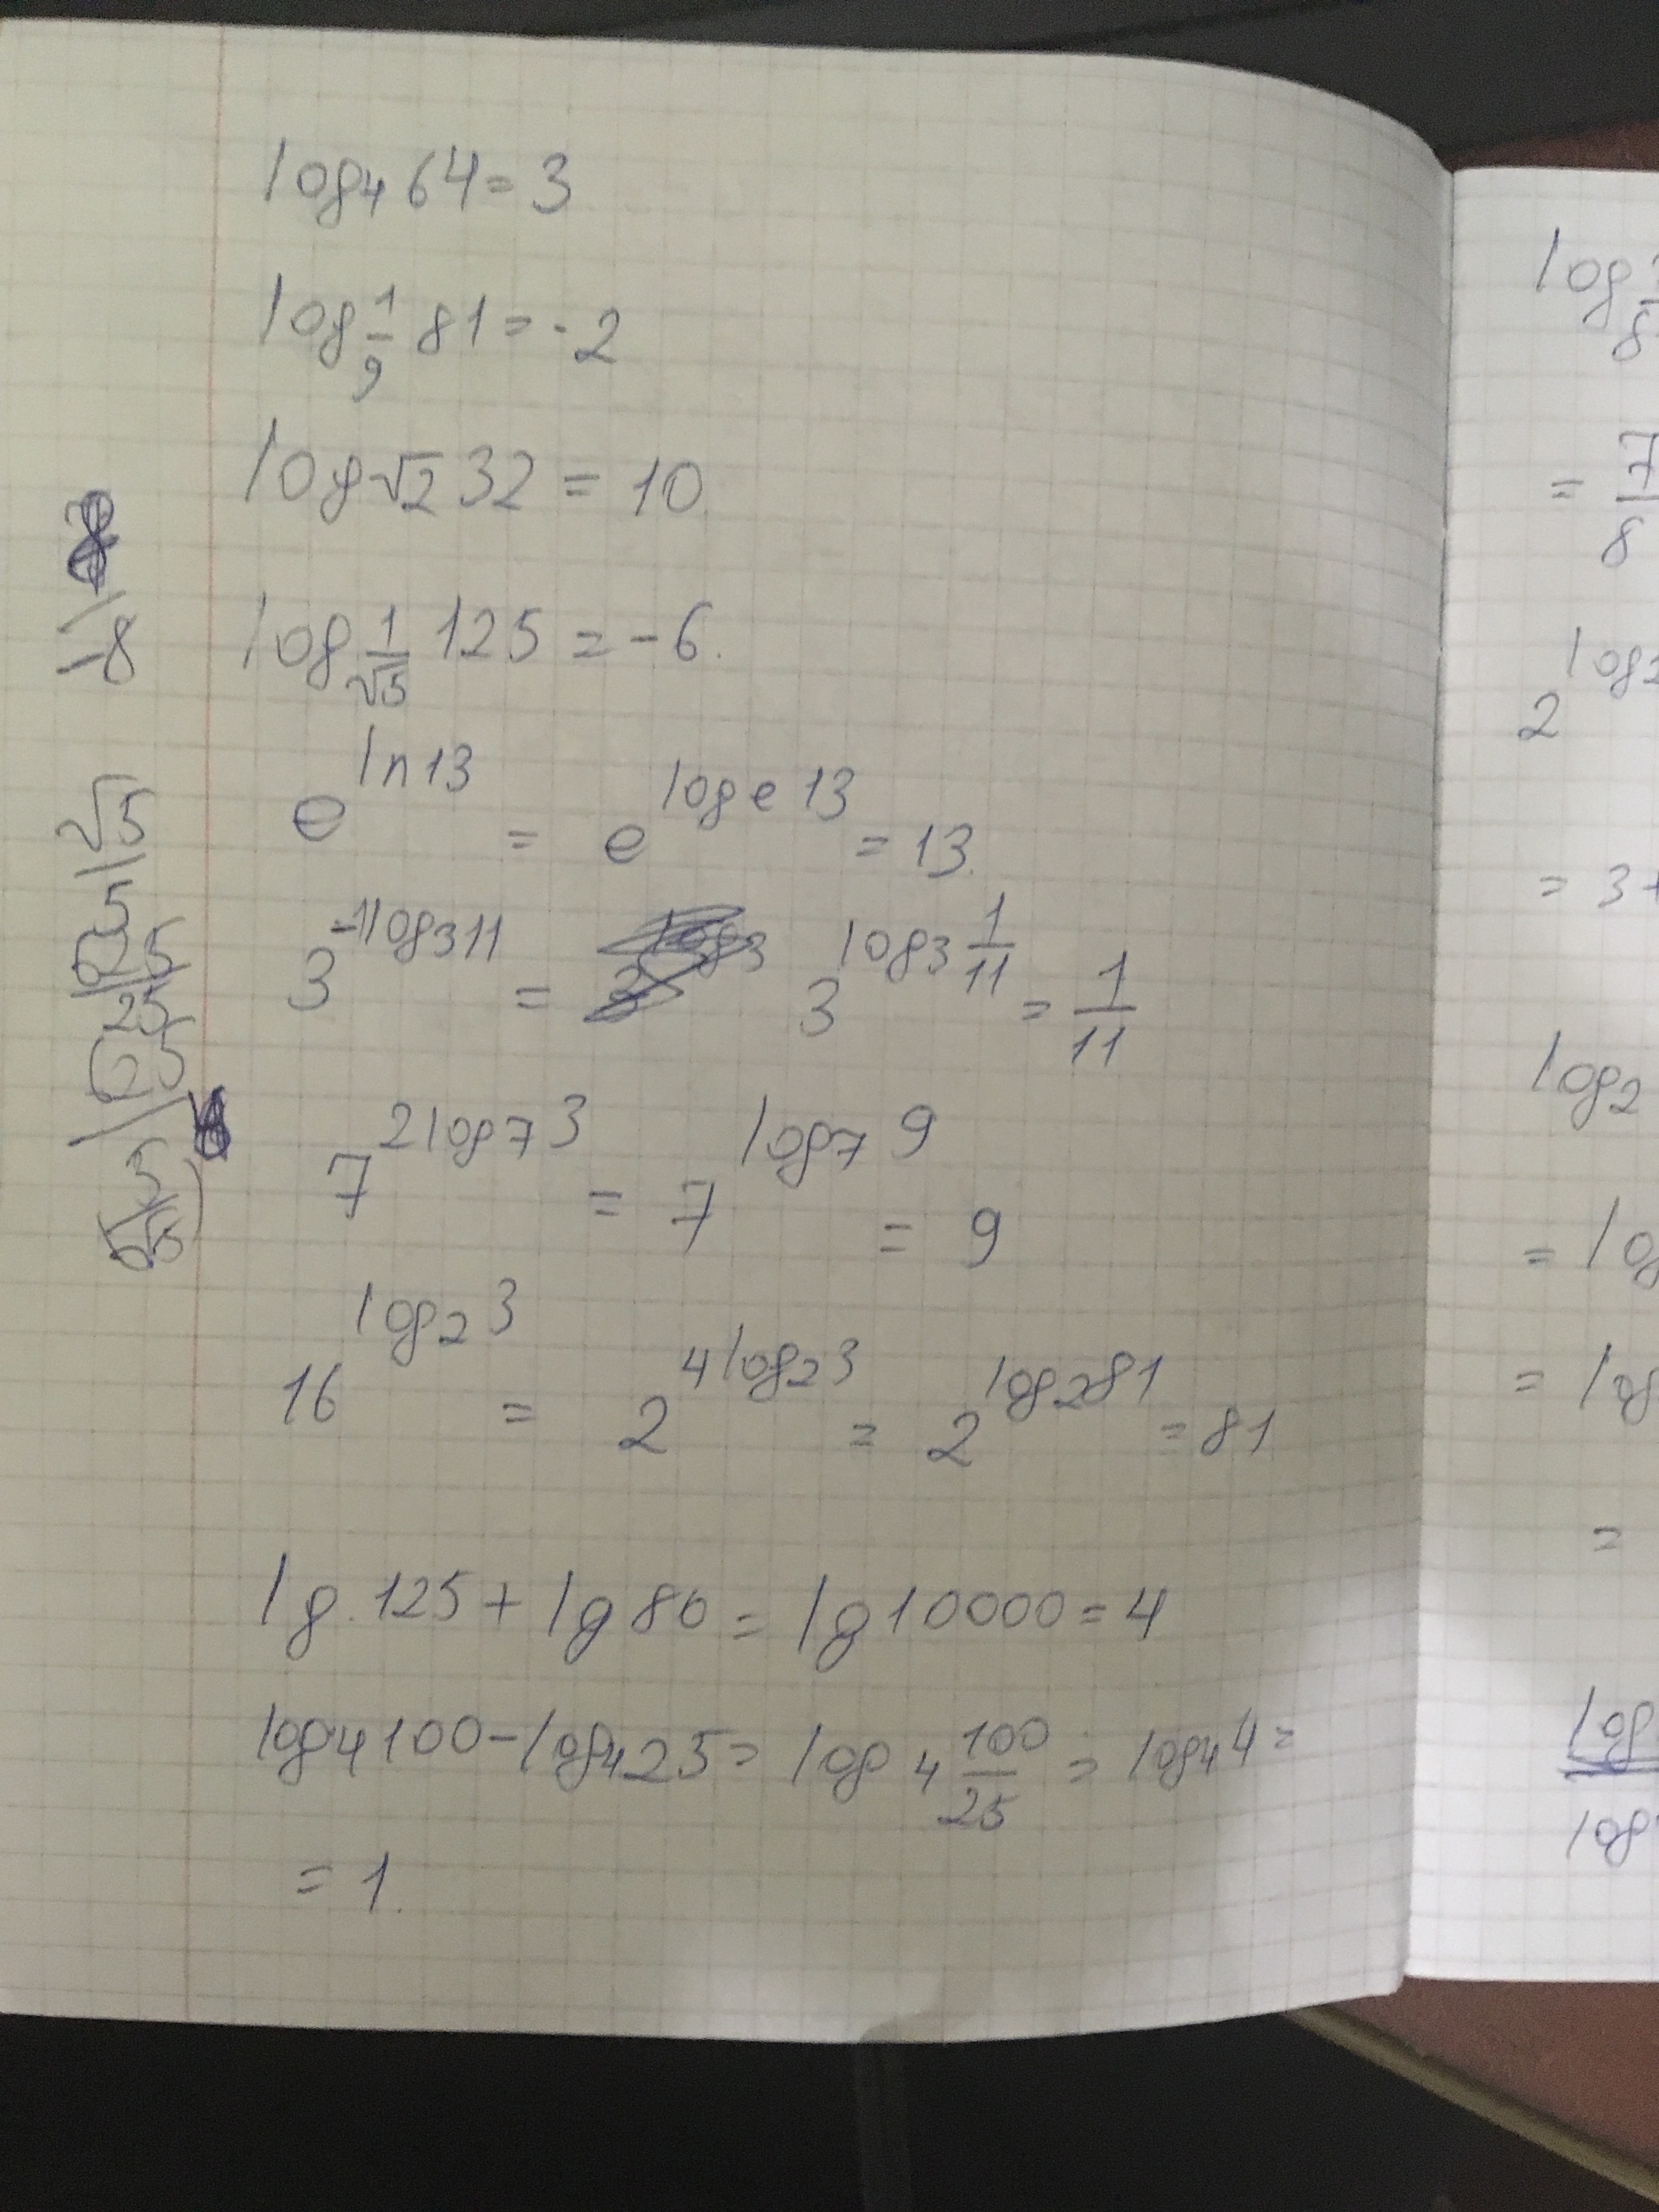 log₄ 64 = 3
log_{1/9} 81 = -2
log_{√2} 32 = 10.
log_{1/√5} 125 = -6.
e^{ln 13} = e^{log_e 13} = 13.
3^{-1 log₃ 11} = 3^{log₃ 1/11} = 1/11
7^{2 log₇ 3} = 7^{log₇ 9} = 9
16^{log₂ 3} = 2^{4 log₂ 3} = 2^{log₂ 81} = 81
lg 125 + lg 80 = lg 10000 = 4
log₄ 100 - log₄ 25 = log₄ 100/25 = log₄ 4 =
= 1.
-8
√5
5
25
= 7/8
2^{log₂
= 3 +
log₂
= log
= log
=
log
log